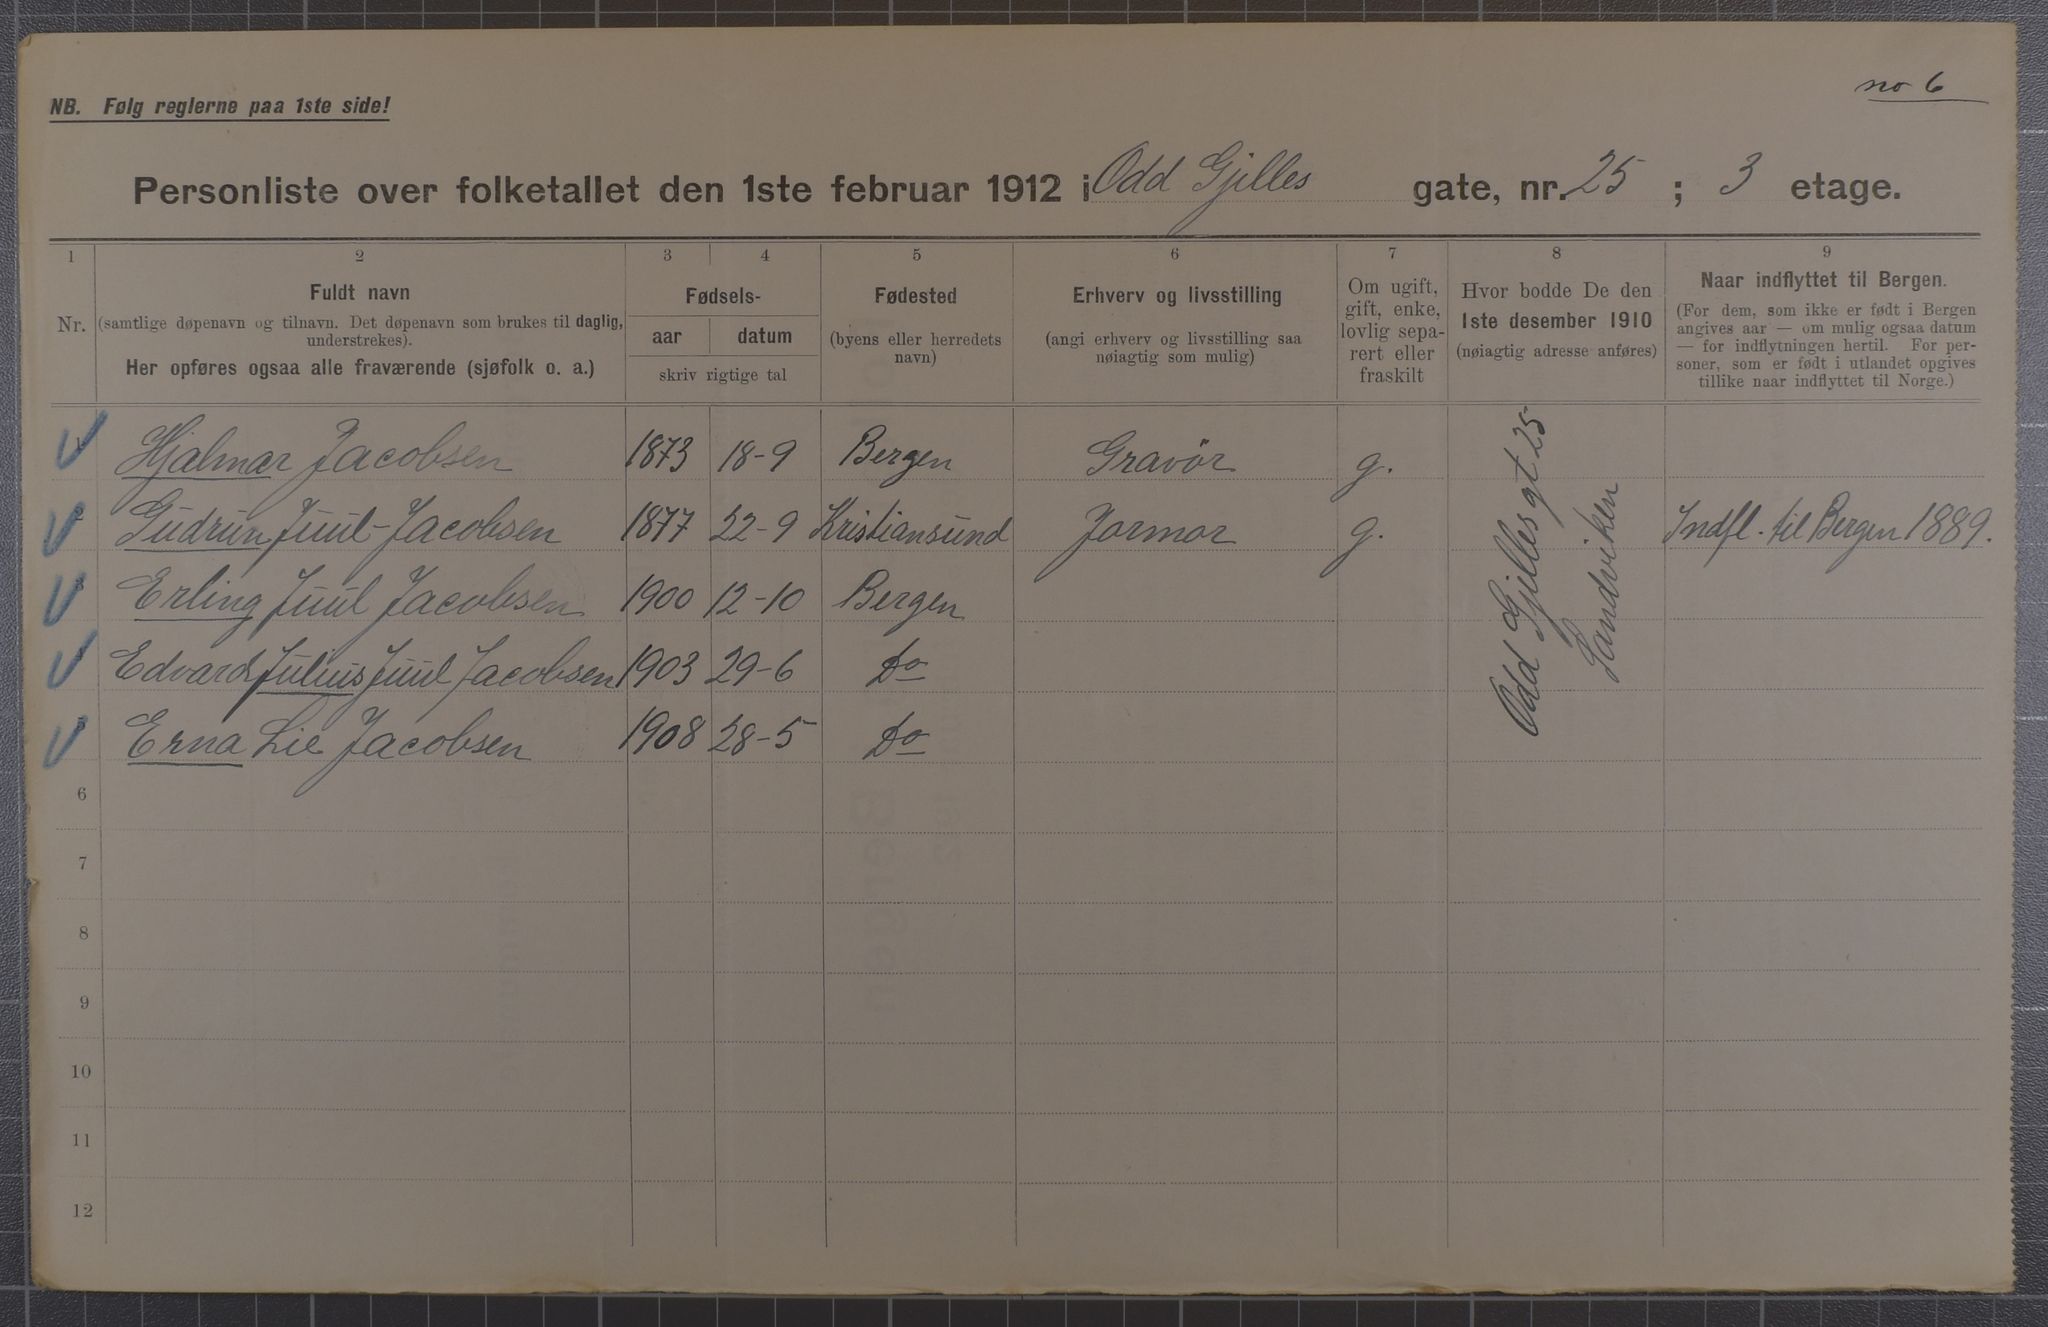 NB. Følg reglerne paa 1ste side!
no 6
Personliste over folketallet den 1ste februar 1912 i Odd Gjilles gate, nr. 25 ; 3 etage.
1 2 3 4 5 6 7 8 9
Nr.
Fuldt navn
(samtlige døpenavn og tilnavn. Det døpenavn som brukes til daglig,
understrekes).
Her opføres ogsaa alle fraværende (sjøfolk o. a.)
Fødsels-
aar datum
skriv rigtige tal
Fødested
(byens eller herredets
navn)
Erhverv og livsstilling
(angi erhverv og livsstilling saa
nøiagtig som mulig)
Om ugift,
gift, enke,
lovlig sepa-
rert eller
fraskilt
Hvor bodde De den
1ste desember 1910
(nøiagtig adresse anføres)
Naar indflyttet til Bergen.
(For dem, som ikke er født i Bergen
angives aar — om mulig ogsaa datum
— for indflytningen hertil. For per-
soner, som er født i utlandet opgives
tillike naar indflyttet til Norge.)
1 Hjalmar Jacobsen 1873 18-9 Bergen Gravør g.
2 Gudrun Juul-Jacobsen 1877 22-9 Kristiansund Jormor g. Indfl. til Bergen 1889.
3 Erling Juul Jacobsen 1900 12-10 Bergen
4 Edvard Julius Juul Jacobsen 1903 29-6 Do
5 Erna Lie Jacobsen 1908 28-5 Do
Odd Gjilles gt 25
Sandviken
6
7
8
9
10
11
12